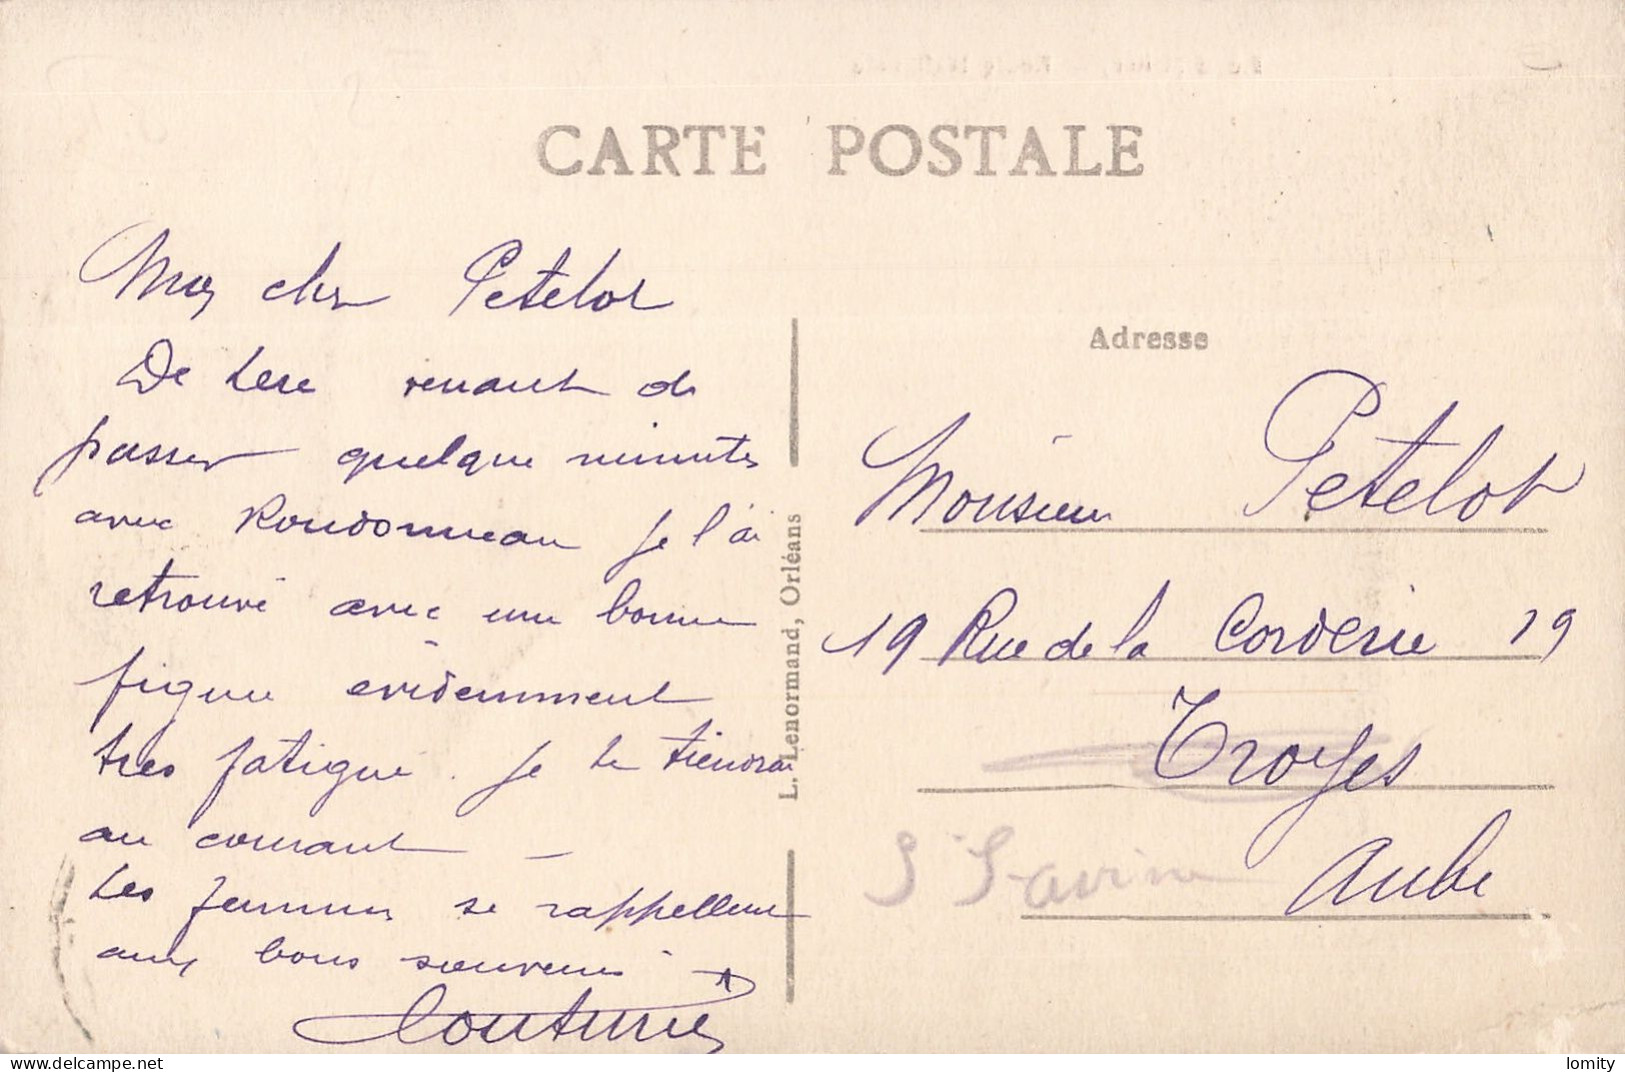 CARTE POSTALE
Mes cher Petelot
De Lere venant de
passer quelque minutes
avec Rondonneau je l'ai
retrouvé avec une bonne
figure evidemment
tres fatigué. Je te tiendrai
au courant –
Les femmes se rappellent
aux bons souvenirs
Couturier
L. Lenormand, Orléans
Adresse
Monsieur Petelot
19 Rue de la Corderie 19
Troyes
Aube
St Savine
lomity